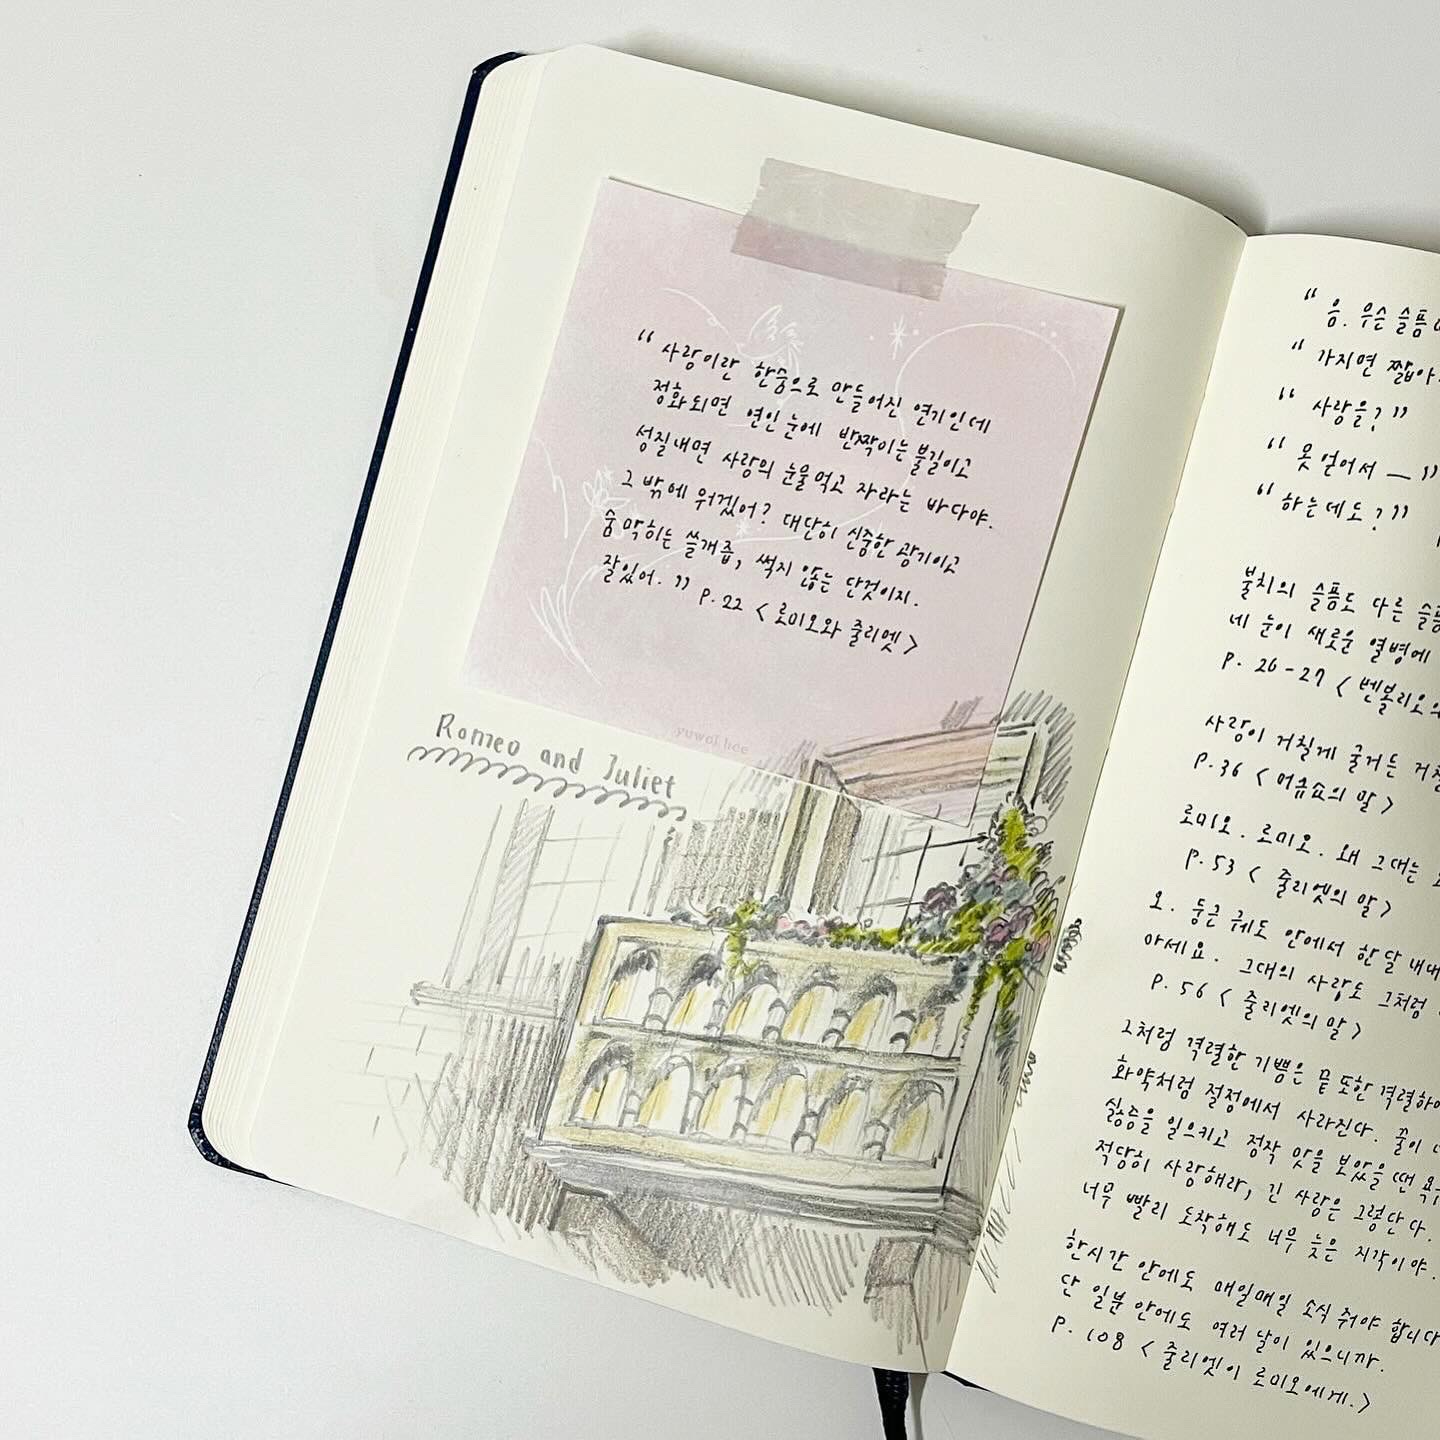 “사랑이란 한숨으로 만들어진 연기인데
정화되면 연인 눈에 반짝이는 불길이고
성질내면 사랑의 눈물 먹고 자라는 바다야.
그 밖에 뭐겠어? 대단히 신중한 광기이고
숨막히는 쓸개즙, 썩지 않는 단것이지.
잘있어.” P.22 <로미오와 줄리엣>
yuwol hee
Romeo and Juliet
“음. 무슨 슬픔이
“가지면 짧아
“사랑을?”
“못 얻어서 —”
“하는데도?”
불치의 슬픔도 다른
네 눈이 새로운 열병에
P. 26-27 <벤볼리오
사랑이 거칠게 굴거든
P.36 <머큐쇼의 말>
로미오. 로미오. 왜 그대는
P.53 <줄리엣의 말>
오. 둥근 궤도 안에서 한달 내내
마세요. 그대의 사랑도 그처럼
P.56 <줄리엣의 말>
그처럼 격렬한 기쁨은 끝 또한 격렬하
화약처럼 절정에서 사라진다. 꿀이
싫증을 일으키고 정작 맛을 보았을 땐
적당히 사랑해라, 긴 사랑은 그렇단다.
너무 빨리 도착해도 너무 늦은 지각이야.
한시간 안에도 매일매일 소식 줘야 합니다
단 일분 안에도 여러 날이 있으니까.
P. 108 <줄리엣이 로미오에게.>